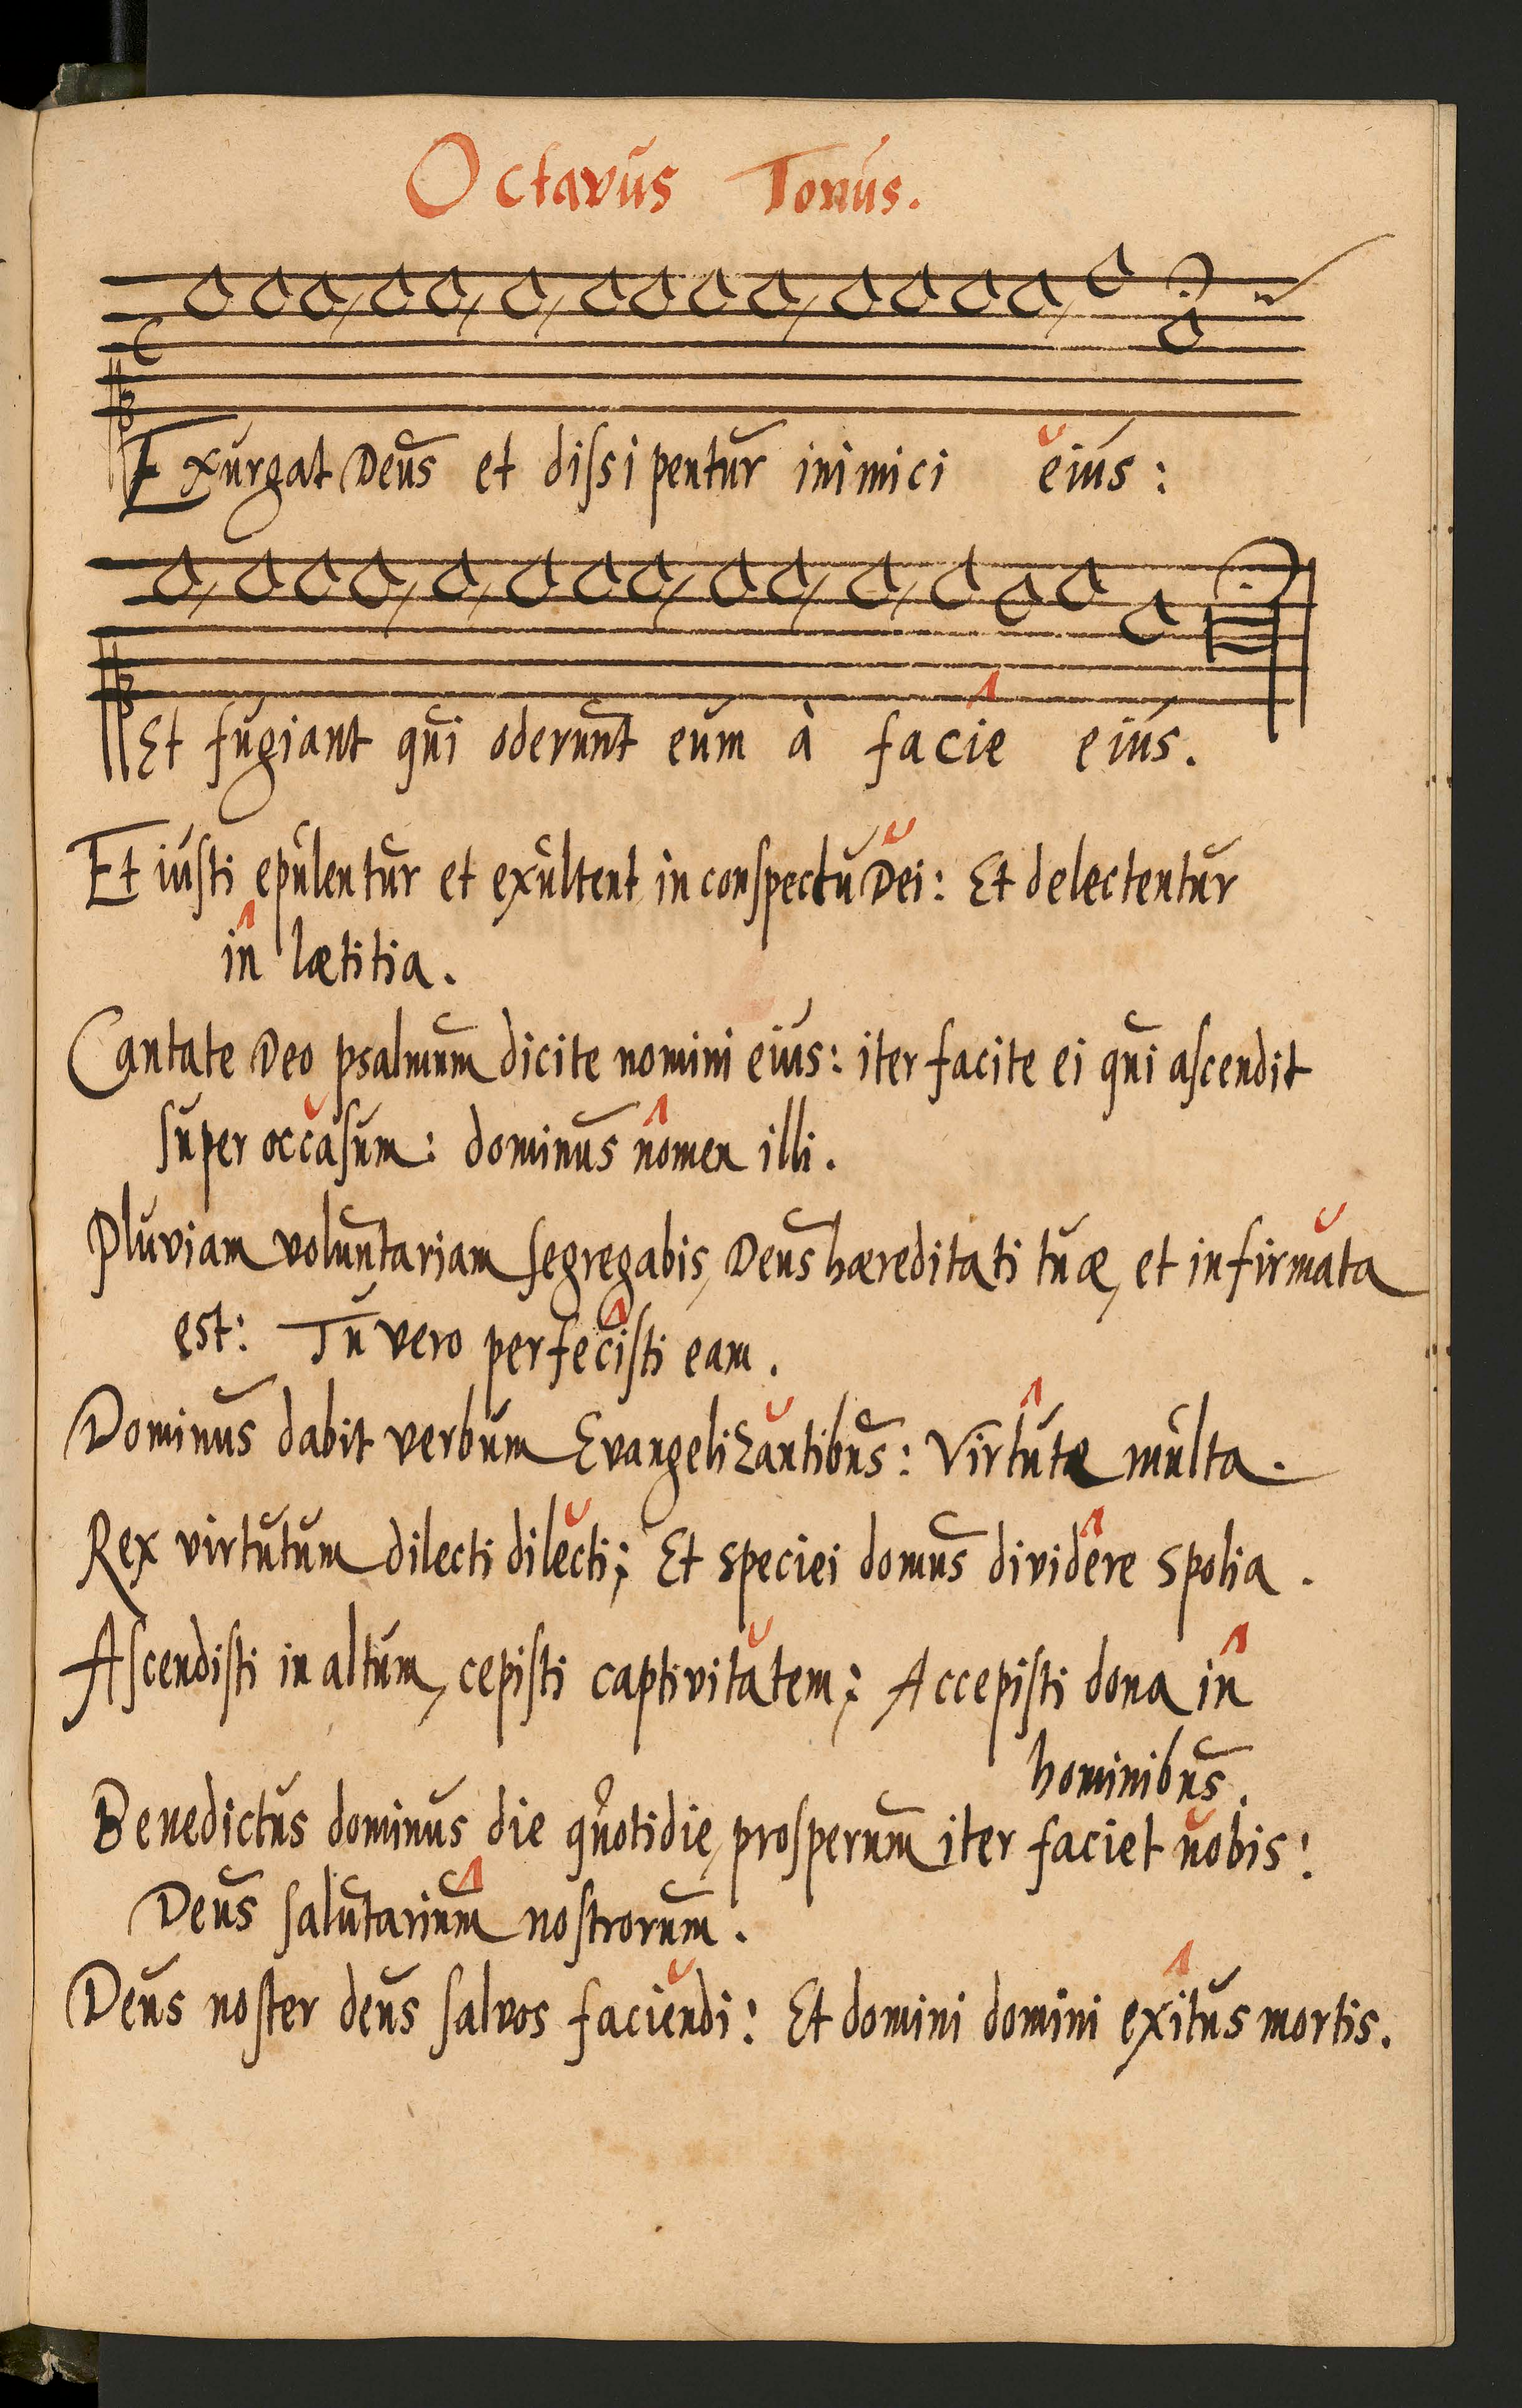 Octavus Tonus.
Exurgat Deus et dissipentur inimici eius:
Et fugiant qui oderunt eum à facie eius.
Et iusti epulentur et exultent in conspectu Dei: Et delectentur
in lætitia.
Cantate Deo psalmum dicite nomini eius: iter facite ei qui ascendit
super occasum: dominus nomen illi.
Pluviam voluntariam segregabis, Deus hæreditati tuæ, et infirmata
est: Tu vero perfecisti eam.
Dominus dabit verbum Evangelizantibus: Virtute multa.
Rex virtutum dilecti dilecti; Et speciei domus dividere spolia.
Ascendisti in altum, cepisti captivitatem; Accepisti dona in
hominibus.
Benedictus dominus die quotidie, prosperum iter faciet nobis:
Deus salutarium nostrorum.
Deus noster deus salvos faciendi: Et domini domini exitus mortis.